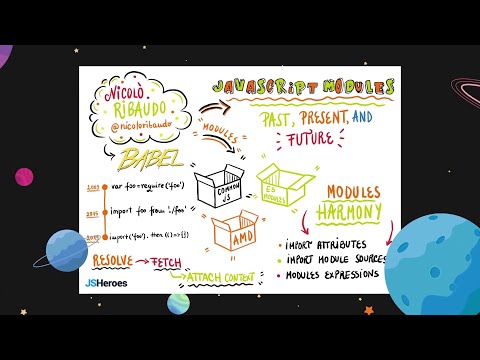 NICOLÒ
RIBAUDO
@nicoloribaudo
BABEL
JAVASCRIPT MODULES
PAST, PRESENT, AND
FUTURE
MODULES
var foo=require('foo')
import foo from './foo'
import('foo').then(()=>{})
COMMON
JS
ES
MODULES
AMD
MODULES
HARMONY
RESOLVE → FETCH
→ ATTACH CONTEXT
• IMPORT ATTRIBUTES
• IMPORT MODULE SOURCES
• MODULES EXPRESSIONS
JSHeroes